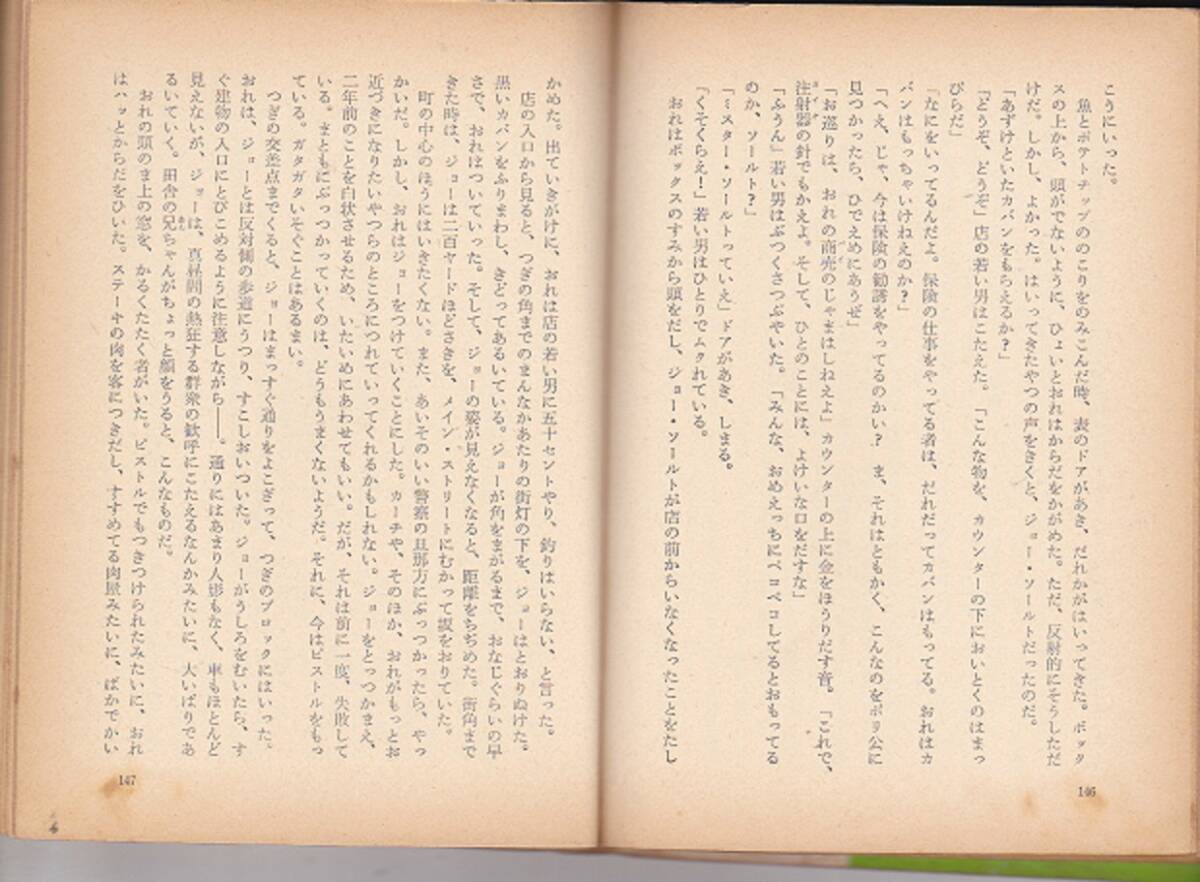 こうにいった。
　魚とポテトチップののこりをのみこんだ時、表のドアがあき、だれかがはいってきた。ボック
スの上から、頭がでないように、ひょいとおれはからだをかがめた。ただ、反射的にそうしただ
けだ。しかし、よかった。はいってきたやつの声をきくと、ジョー・ソールトだったのだ。
「あずけといたカバンをもらえるか？」
「どうぞ、どうぞ」店の若い男はこたえた。「こんな物を、カウンターの下においとくのはまっ
ぴらだ」
「なにをいってるんだよ。保険の仕事をやってる者は、だれだってカバンはもってる。おれはカ
バンはもっちゃいけねえのか？」
「へえ、じゃ、今は保険の勧誘をやってるのかい？　ま、それはともかく、こんなのをポリ公に
見つかったら、ひでえめにあうぜ」
「お巡りは、おれの商売のじゃまはしねえよ」カウンターの上に金をほうりだす音。「これで、
注射器の針でもかえよ。そして、ひとのことには、よけいな口をだすな」
「ふうん」若い男はぶつくさつぶやいた。「みんな、おめえっちにペコペコしてるとおもってる
のか、ソールト？」
「ミスター・ソールトっていえ」ドアがあき、しまる。
「くそくらえ！」若い男はひとりでムクれている。
　おれはボックスのすみから頭をだし、ジョー・ソールトが店の前からいなくなったことをたし
146
かめた。出ていきがけに、おれは店の若い男に五十セントやり、釣りはいらない、と言った。
　店の入口から見ると、つぎの角までのまんなかあたりの街灯の下を、ジョーはとおりぬけた。
黒いカバンをふりまわし、きどってあるいている。ジョーが角をまがるまで、おなじぐらいの早
さで、おれはついていった。そして、ジョーの姿が見えなくなると、距離をちぢめた。街角まで
きた時は、ジョーは二百ヤードほどさきを、メイン・ストリートにむかって坂をおりていた。
　町の中心のほうにはいきたくない。また、あいそのいい警察の旦那方にぶっつかったら、やっ
かいだ。しかし、おれはジョーをつけていくことにした。カーチや、そのほか、おれがもっとお
近づきになりたいやつらのところにつれていってくれるかもしれない。ジョーをとっつかまえ、
二年前のことを白状させるため、いたいめにあわせてもいい。だが、それは前に一度、失敗して
いる。まともにぶっつかっていくのは、どうもうまくないようだ。それに、今はピストルをもっ
ている。ガタガタいそぐことはあるまい。
　つぎの交差点までくると、ジョーはまっすぐ通りをよこぎって、つぎのブロックにはいった。
おれは、ジョーとは反対側の歩道にうつり、すこしおいついた。ジョーがうしろをむいたら、す
ぐ建物の入口にとびこめるように注意しながら――。通りにはあまり人影もなく、車もほとんど
見えないが、ジョーは、真昼間の熱狂する群衆の歓呼にこたえるなんかみたいに、大いばりであ
るいていく。田舎の兄ちゃんがちょっと顔をうると、こんなものだ。
　おれの頭のま上の窓を、かるくたたく者がいた。ピストルでもつきつけられたみたいに、おれ
はハッとからだをひいた。ステーキの肉を客につきだし、すすめてる肉屋みたいに、ばかでかい
147